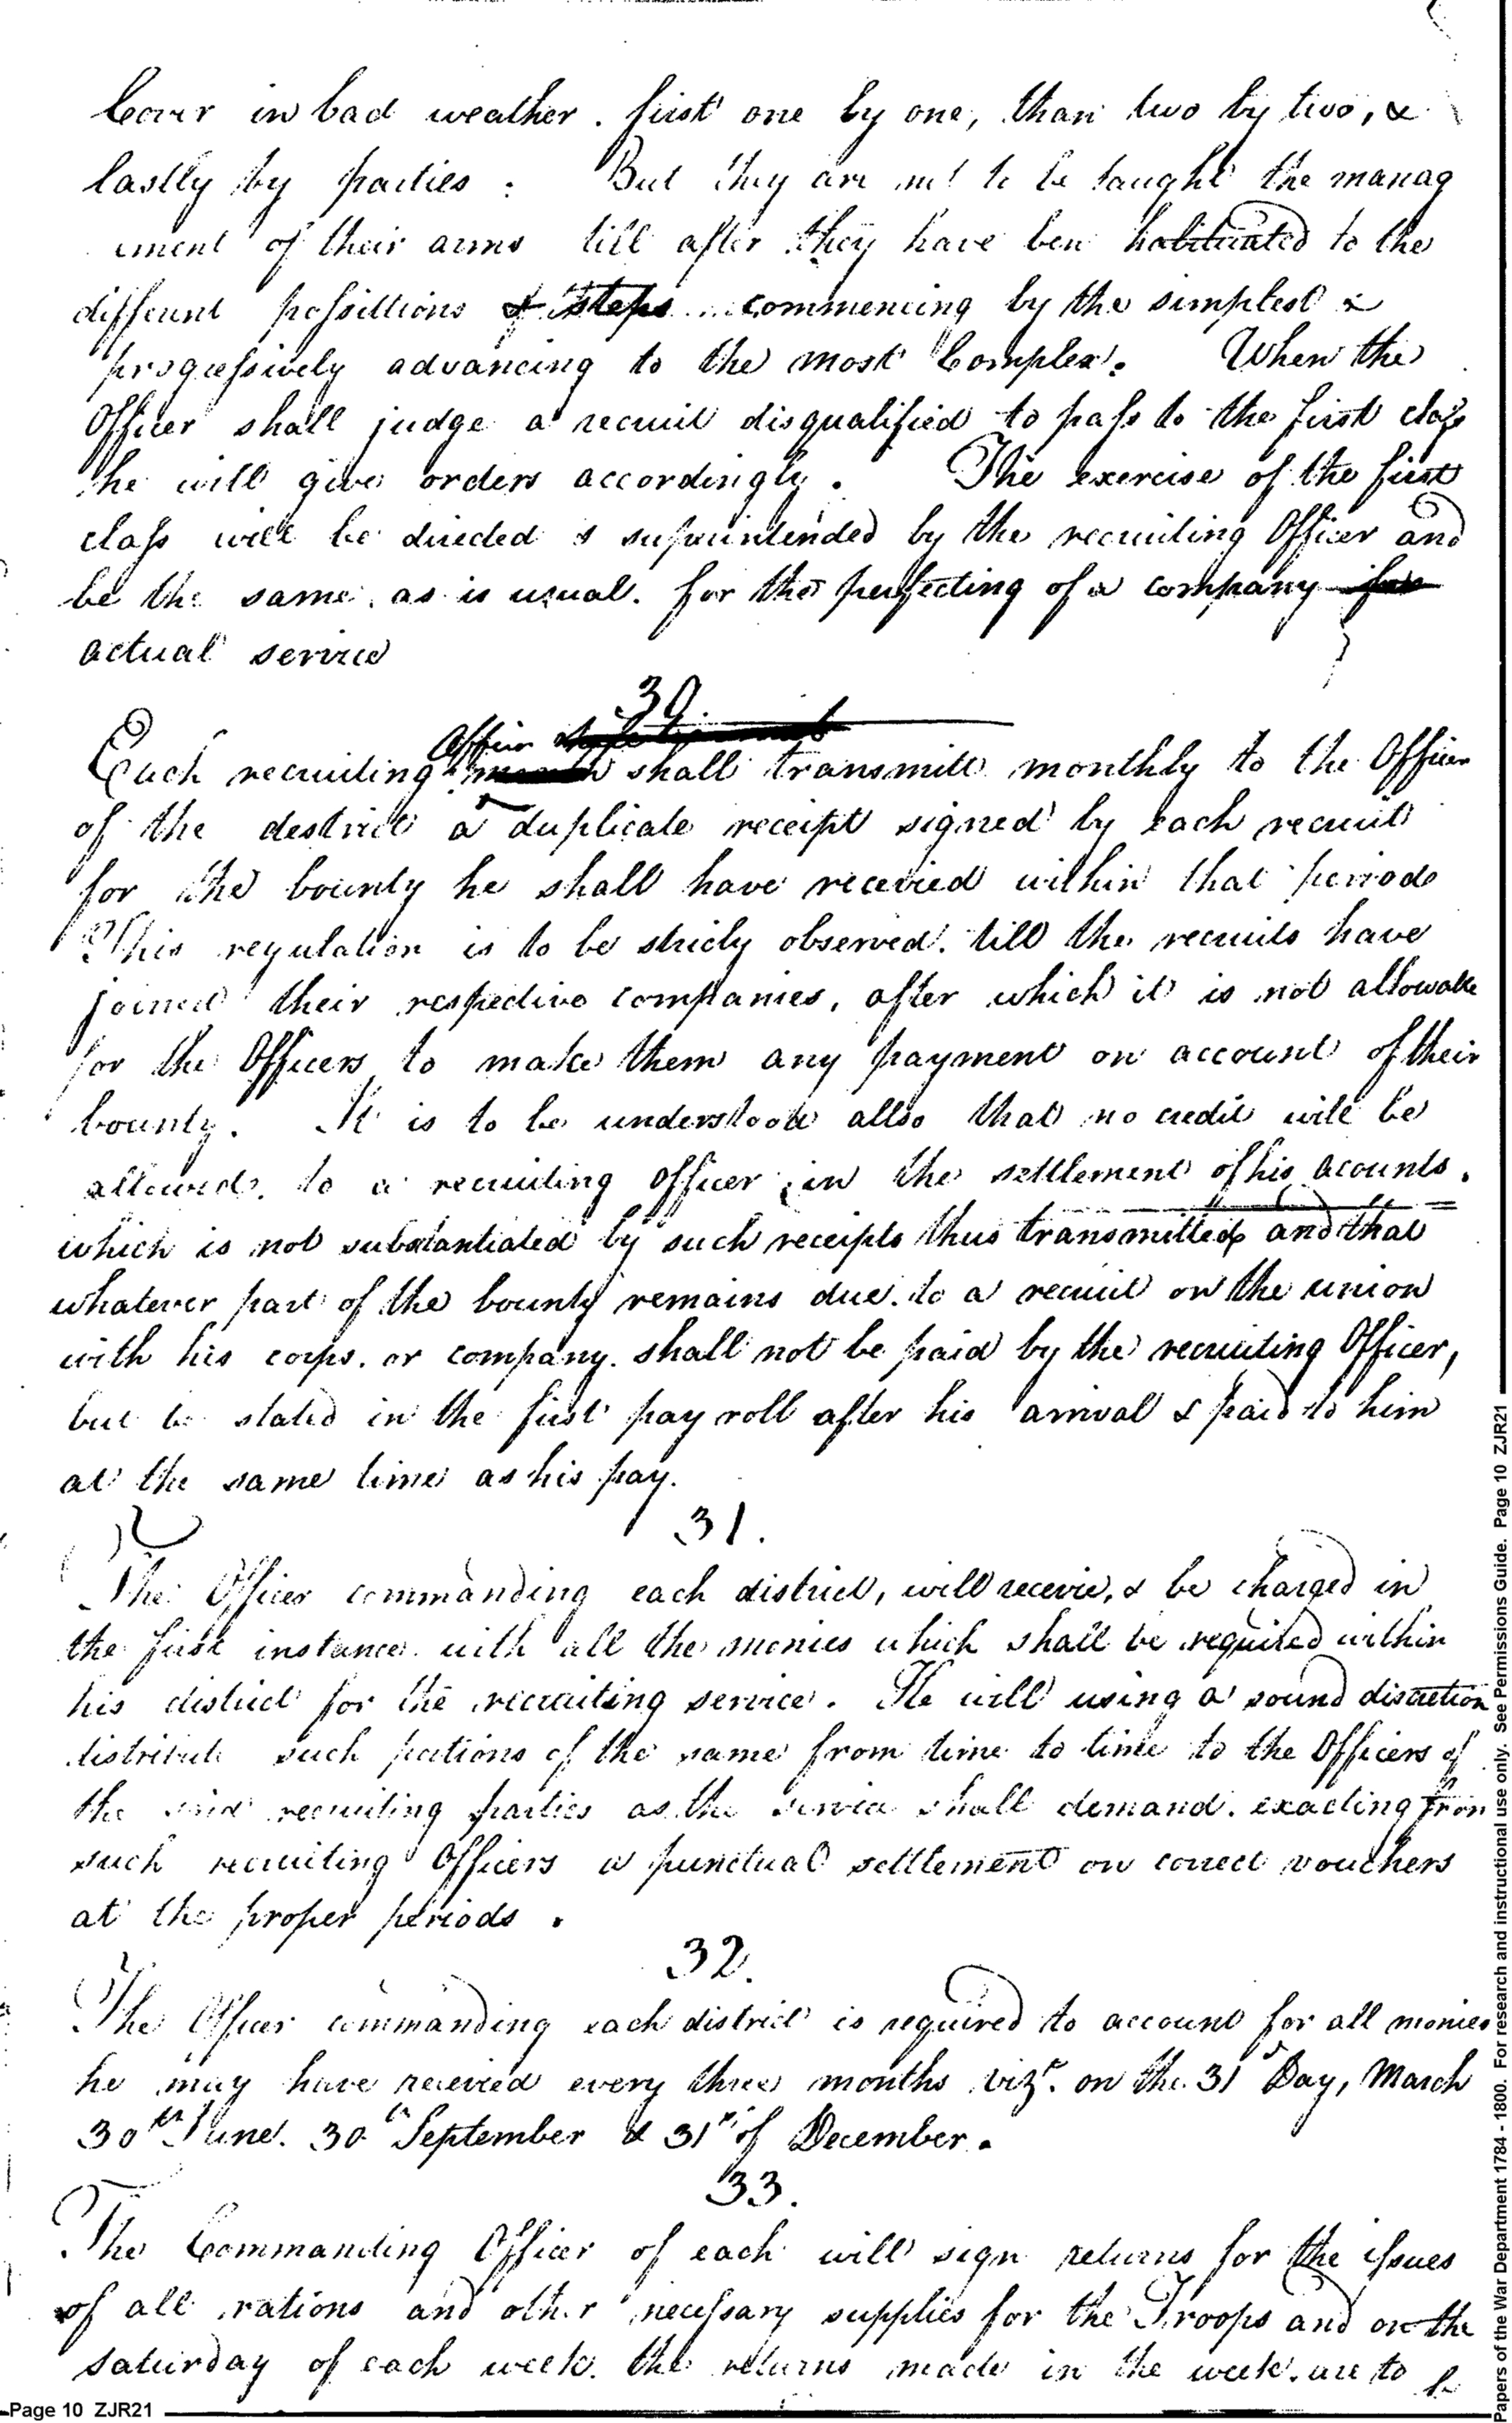 Cover in bad weather. first one by one, than two by two, &
lastly by parties: But they are not to be taught the manag
ement of their arms till after they have ben habituated to the
different possittions & steps commencing by the simplest &
progressively advancing to the most Complex. When the
Officer shall judge a recruit disqualified to pass to the first class
he will give orders accordingly. The exercise of the first
class will be directed & supeintended by the recruiting Officer and
be the same. as is usual. for the perfecting of a company for
actual service
30.
Officer
Each recruiting shall transmitt monthly to the Officer
of the destrict a duplicate receipt signed by each recruit
for the bounty he shall have recevied within that perriode
This regulation is to be stricly observed. till the recruits have
joined their respective companies, after which it is not allowable
for the Officers to make them any payment on account of their
bounty. It is to be understood allso that no credit will be
allowed. to a recruiting Officer in the settlement of his acounts.
which is not substantiated by such receipts thus transmitted and that
whatever part of the bounty remains due. to a recruit on the union
with his corps. or company. shall not be paid by the recruiting Officer,
but be stated in the first pay roll after his arrival & paid to him
at the same time as his pay.
31.
The Officer commanding each district, will recevie, & be charged in
the first instance. with all the monies which shall be required within
his district for the recruiting service. He will using a sound discretion
distribute such potions of the same from time to time to the Officers of
the said recruiting parties as the service shall demand. exacting from
such recruiting Officers a punctual settlement on correct vouchers
at the proper periods.
32.
The Officer commanding each district is required to account for all monies
he may have recevied every three months vizt. on the 31st Day, March
30th June. 30th September & 31st of December.
33.
The Commanding Officer of each will sign returns for the issues
of all rations and other necessary supplies for the Troops and on the
saturday of each week. the returns made in the week. are to be
Page 10 ZJR21
Papers of the War Department 1784 - 1800. For research and instructional use only. See Permissions Guide. Page 10 ZJR21